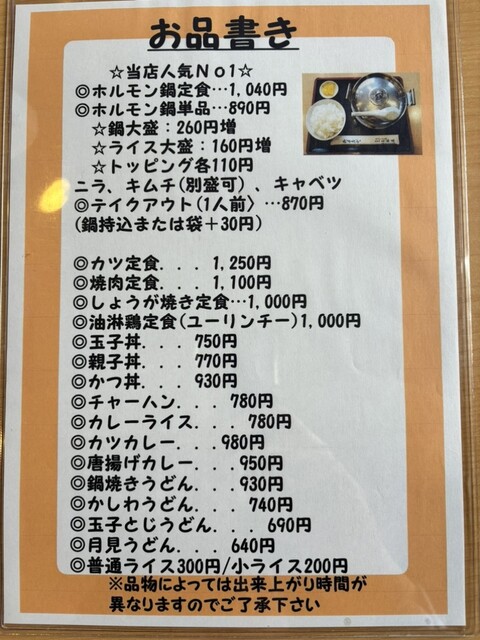 お品書き
☆当店人気No1☆
◎ホルモン鍋定食…1,040円
◎ホルモン鍋単品…890円
☆鍋大盛：260円増
☆ライス大盛：160円増
☆トッピング各110円
ニラ、キムチ(別盛可)、キャベツ
◎テイクアウト(1人前)…870円
(鍋持込または袋＋30円)
◎カツ定食...1,250円
◎焼肉定食...1,100円
◎しょうが焼き定食…1,000円
◎油淋鶏定食(ユーリンチー)1,000円
◎玉子丼...750円
◎親子丼...770円
◎かつ丼...930円
◎チャーハン...780円
◎カレーライス...780円
◎カツカレー...980円
◎唐揚げカレー...950円
◎鍋焼きうどん...930円
◎かしわうどん...740円
◎玉子とじうどん...690円
◎月見うどん...640円
◎普通ライス300円/小ライス200円
※品物によっては出来上がり時間が
異なりますのでご了承下さい